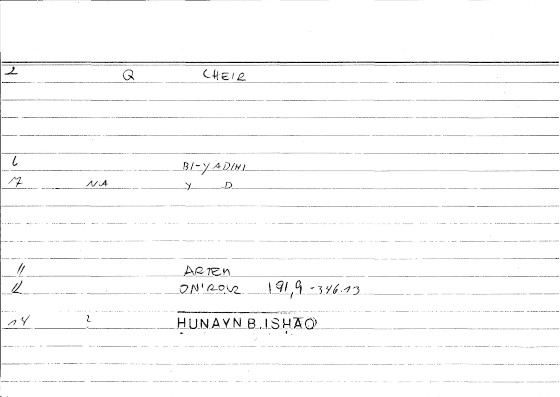 2 Q CHEIR
6 BI-YADIHI
7 NA Y D
11 ARTEM
12 ON'ROVZ 191,9-346.13
14 2 HUNAYN B. ISḤĀQ